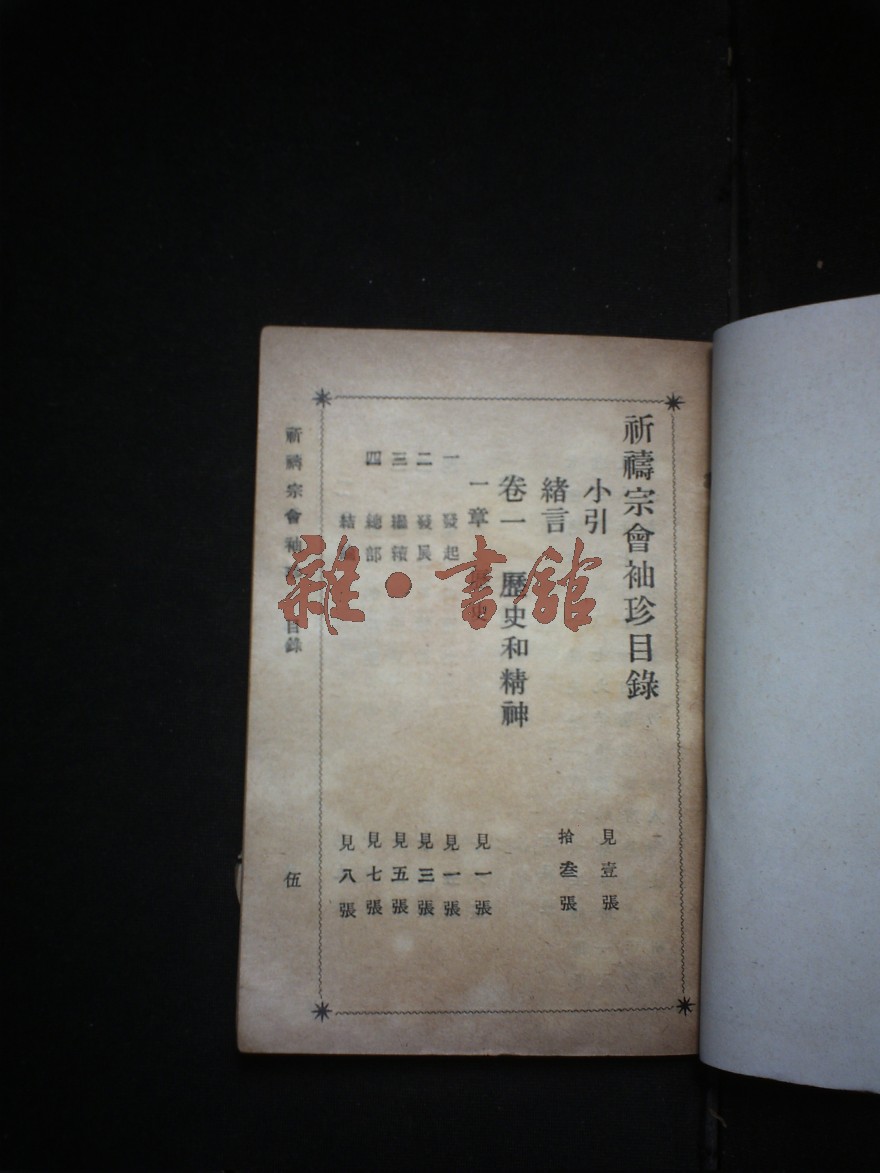 祈禱宗會袖珍目錄
小引 見壹張
緒言 拾叁張
卷一 歷史和精神
一章 史 見一張
一 發起 見一張
二 發展 見三張
三 繼續 見五張
四 總部 見七張
結 見八張
祈禱宗會袖 目錄 伍
雜·書舘